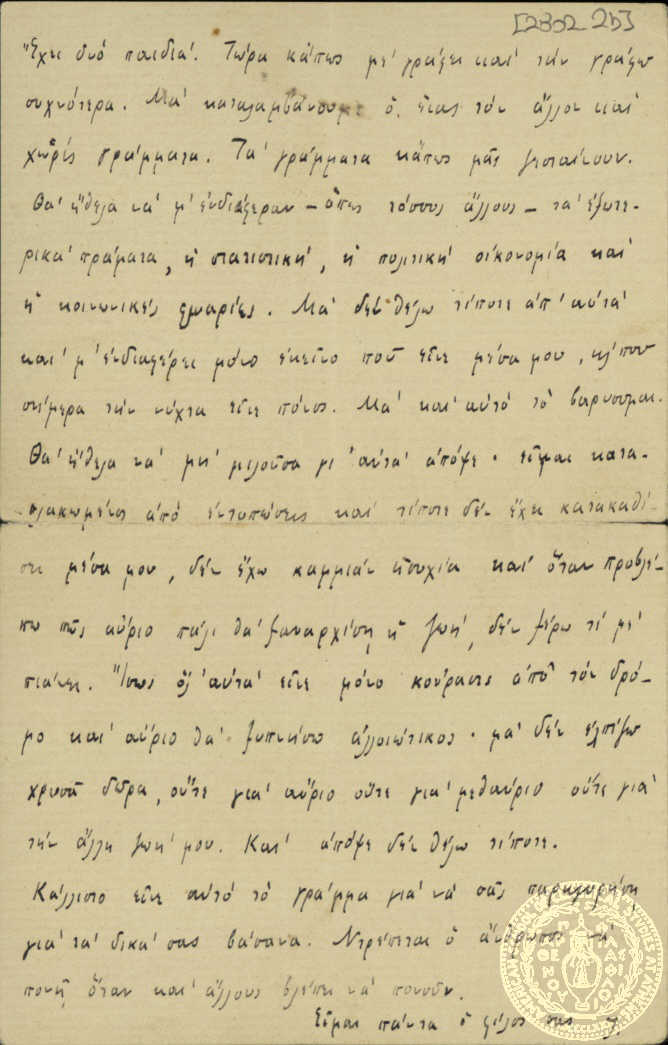 [2302 2b]
Ἔχει δυό παιδιά. Τώρα κάπως μέ γράφει καί τήν γράφω
συχνότερα. Μά καταλαμβάνουμε ὁ ἕνας τόν ἄλλον καί
χωρίς γράμματα. Τά γράμματα κάπως μᾶς
Θά ἤθελα νά μ' ἐνδιαφέραν – ὅπως τόσους ἄλλους – τά ἐξωτε-
ρικά πράματα, ἡ στατιστική, ἡ πολιτική οἰκονομία καί
ἡ κοινωνικές φλυαρίες. Μά δέν θέλω τίποτε ἀπ' αὐτά
καί μ' ἐνδιαφέρει μόνο ἐκεῖνο ποῦ εἶνε μέσα μου, κι' που
σήμερα τήν νύχτα εἶνε πόνος. Μά καί αὐτό τό βαρυοῦμαι.
Θά ἤθελα νά μή μιλοῦσα γι' αὐτά ἀπόψε. εἶμαι κατα-
πλακωμένος ἀπό ἐντυπώσεις καί τίποτε δέν ἔχει κατακαθί-
σει μέσα μου, δέν ἔχω καμμιάν ἡσυχία καί ὅταν προβλέ-
πω πῶς αὔριο πάλι θά ξαναρχίσῃ ἡ ζωή, δέν ξέρω τί μέ
πιάνει. Ἴσως ὅλ' αὐτά εἶνε μόνο κούρασις ἀπό τόν δρό-
μο καί αὔριο θά ξυπνήσω ἀλλοιώτικος. μά δέν ἐλπίζω
χρυσᾶ δῶρα, οὔτε γιά αὔριο οὔτε γιά μεθαύριο οὔτε γιά
τήν ἄλλη ζωή μου. Καί ἀπόψε δέν θέλω τίποτε.
Κάλλιστο εἶνε αὐτό τό γράμμα γιά νά σᾶς παρηγορήσῃ
γιά τά δικά σας βάσανα. Ντρέπεται ὁ ἄνθρωπος νά
πονῇ ὅταν καί ἄλλους βλέπει νά πονοῦν.
Εἶμαι πάντα ὁ φίλος σας